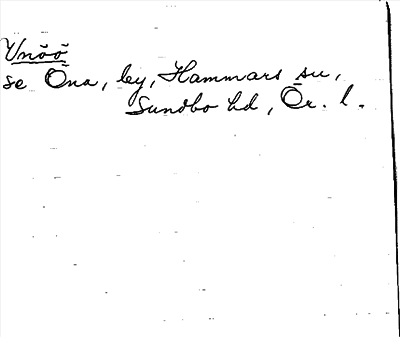 Unöö
se Öna, by, Hammars sn,
Sundbo hd, Ör. l.